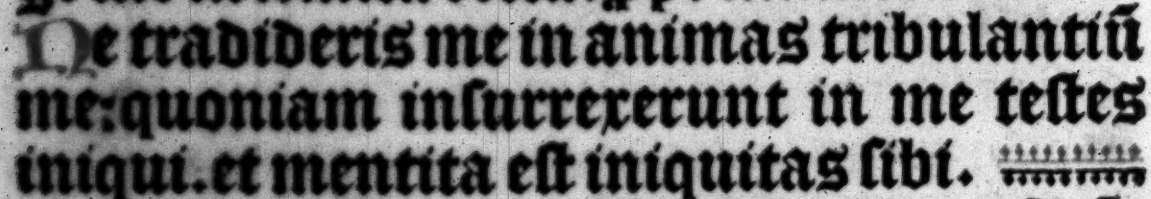 Ne tradideris me in animas tribulantiū
me:quoniam inſurrexerunt in me teſtes
iniqui.et mentita eſt iniquitas ſibi.